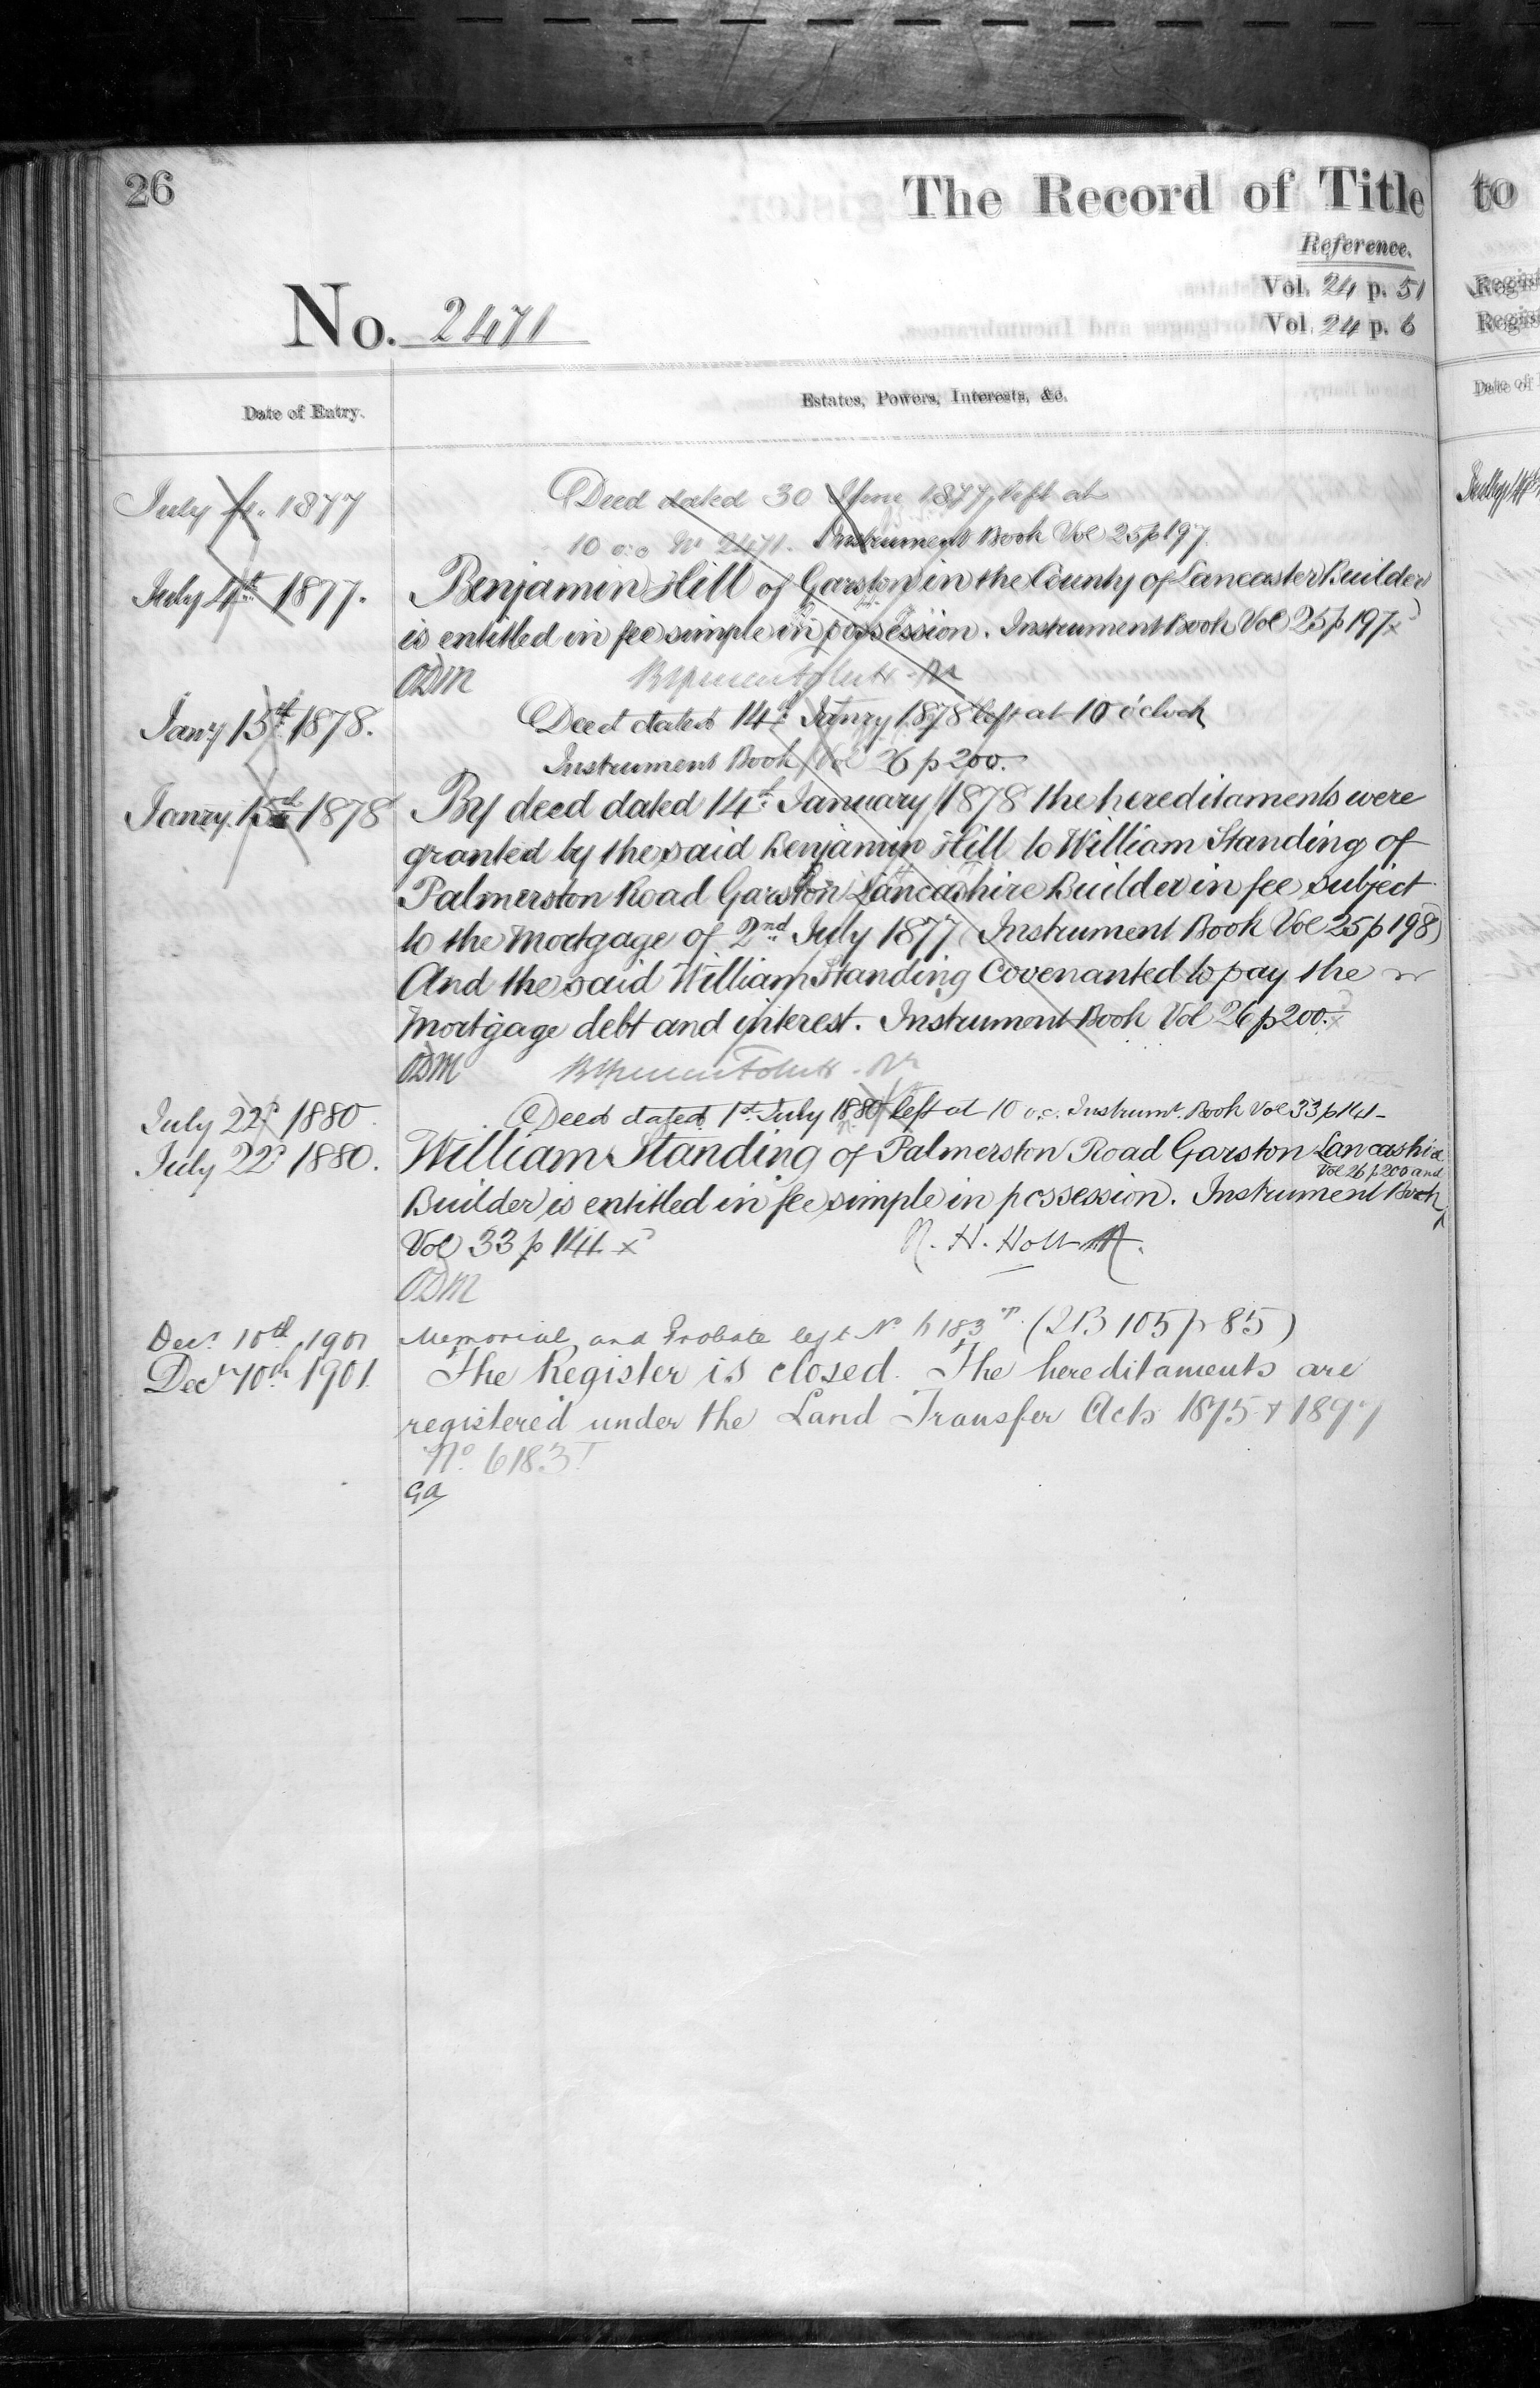 26
The Record of Title
to
Reference.
Vol. 24 p. 51
Vol. 24 p. 6
No. 2471
Date of Entry.
Estates, Powers, Interests, &c.
Date of
July 4. 1877
Deed dated 30 June 1877 left at
10 o.c No 2471. Instrument Book Vol 25 p 197
July 4th 1877.
Benjamin Hill of Garston in the County of Lancaster Builder
is entitled in fee simple in possession. Instrument Book Vol 25 p 197 x
ODM
Jany 15th 1878.
Deed dated 14th Janry 1878 left at 10 o'clock
Instrument Book Vol 26 p 200.
Janry. 15th 1878
By deed dated 14th January 1878 the hereditaments were
granted by the said Benjamin Hill to William Standing of
Palmerston Road Garston Lancashire Builder in fee subject
to the Mortgage of 2nd July 1877 (Instrument Book Vol 25 p 198)
And the said William Standing Covenanted to pay the
Mortgage debt and interest. Instrument Book Vol 26 p 200. x
ODM
July 22d 1880
Deed dated 1st July 1880 left at 10 o.c. Instrumt. Book Vol 33 p 141 -
July 22d 1880.
William Standing of Palmerston Road Garston Lancashire
Vol 26 p 200 and
Builder is entitled in fee simple in possession. Instrument Book
Vol 33 p 141. x
R. H. Holt
ODM
Decr 10th 1901
Memorial and Probate left No 6183T (2B 105 p 85)
Decr 10th 1901.
The Register is closed. The hereditaments are
registered under the Land Transfer Acts 1875 & 1897
No. 6183T
GA